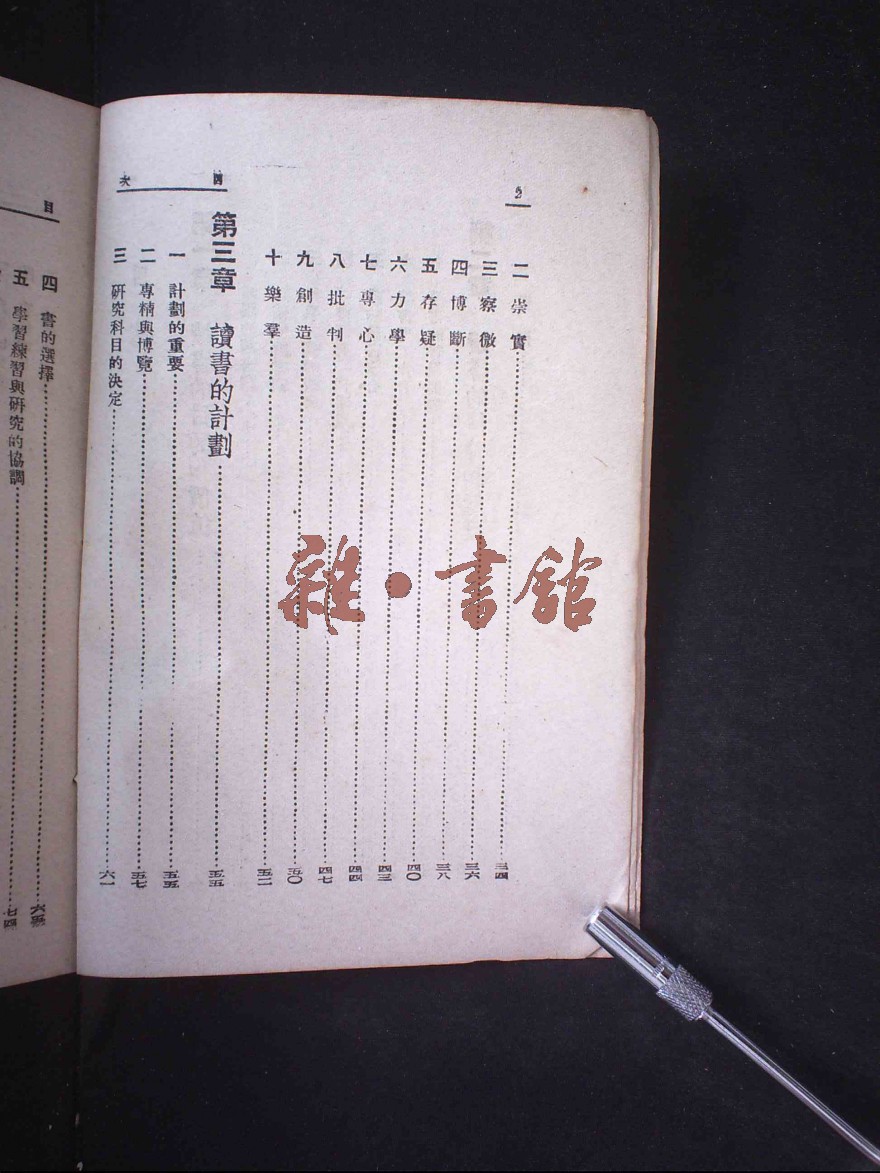 二 崇實 三四
三 察微 三六
四 博斷 三八
五 存疑 四〇
六 力學 四三
七 專心 四四
八 批判 四七
九 創造 五〇
十 樂羣 五二
第三章 讀書的計劃 五五
一 計劃的重要 五五
二 專精與博覽 五七
三 研究科目的決定 六一
目
四 書的選擇 六五
五 學習練習與研究的協調 七四
雜·書館